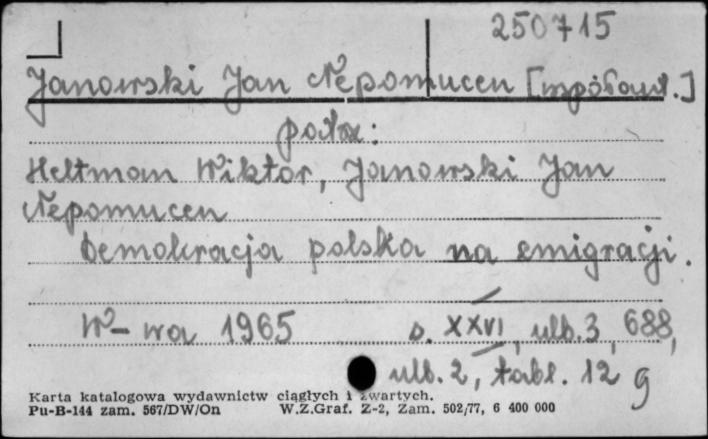 250715
Janowski Jan Nepomucen [współaut.]
patrz:
Heltman Wiktor, Janowski Jan
Nepomucen
Demokracja polska na emigracji.
W-wa 1965 s. XXVI, ulb. 3, 688,
ulb. 2, tabl. 12 g
Karta katalogowa wydawnictw ciągłych i zwartych.
Pu-B-144 zam. 567/DW/On W.Z.Graf. Z-2, Zam. 502/77, 6 400 000